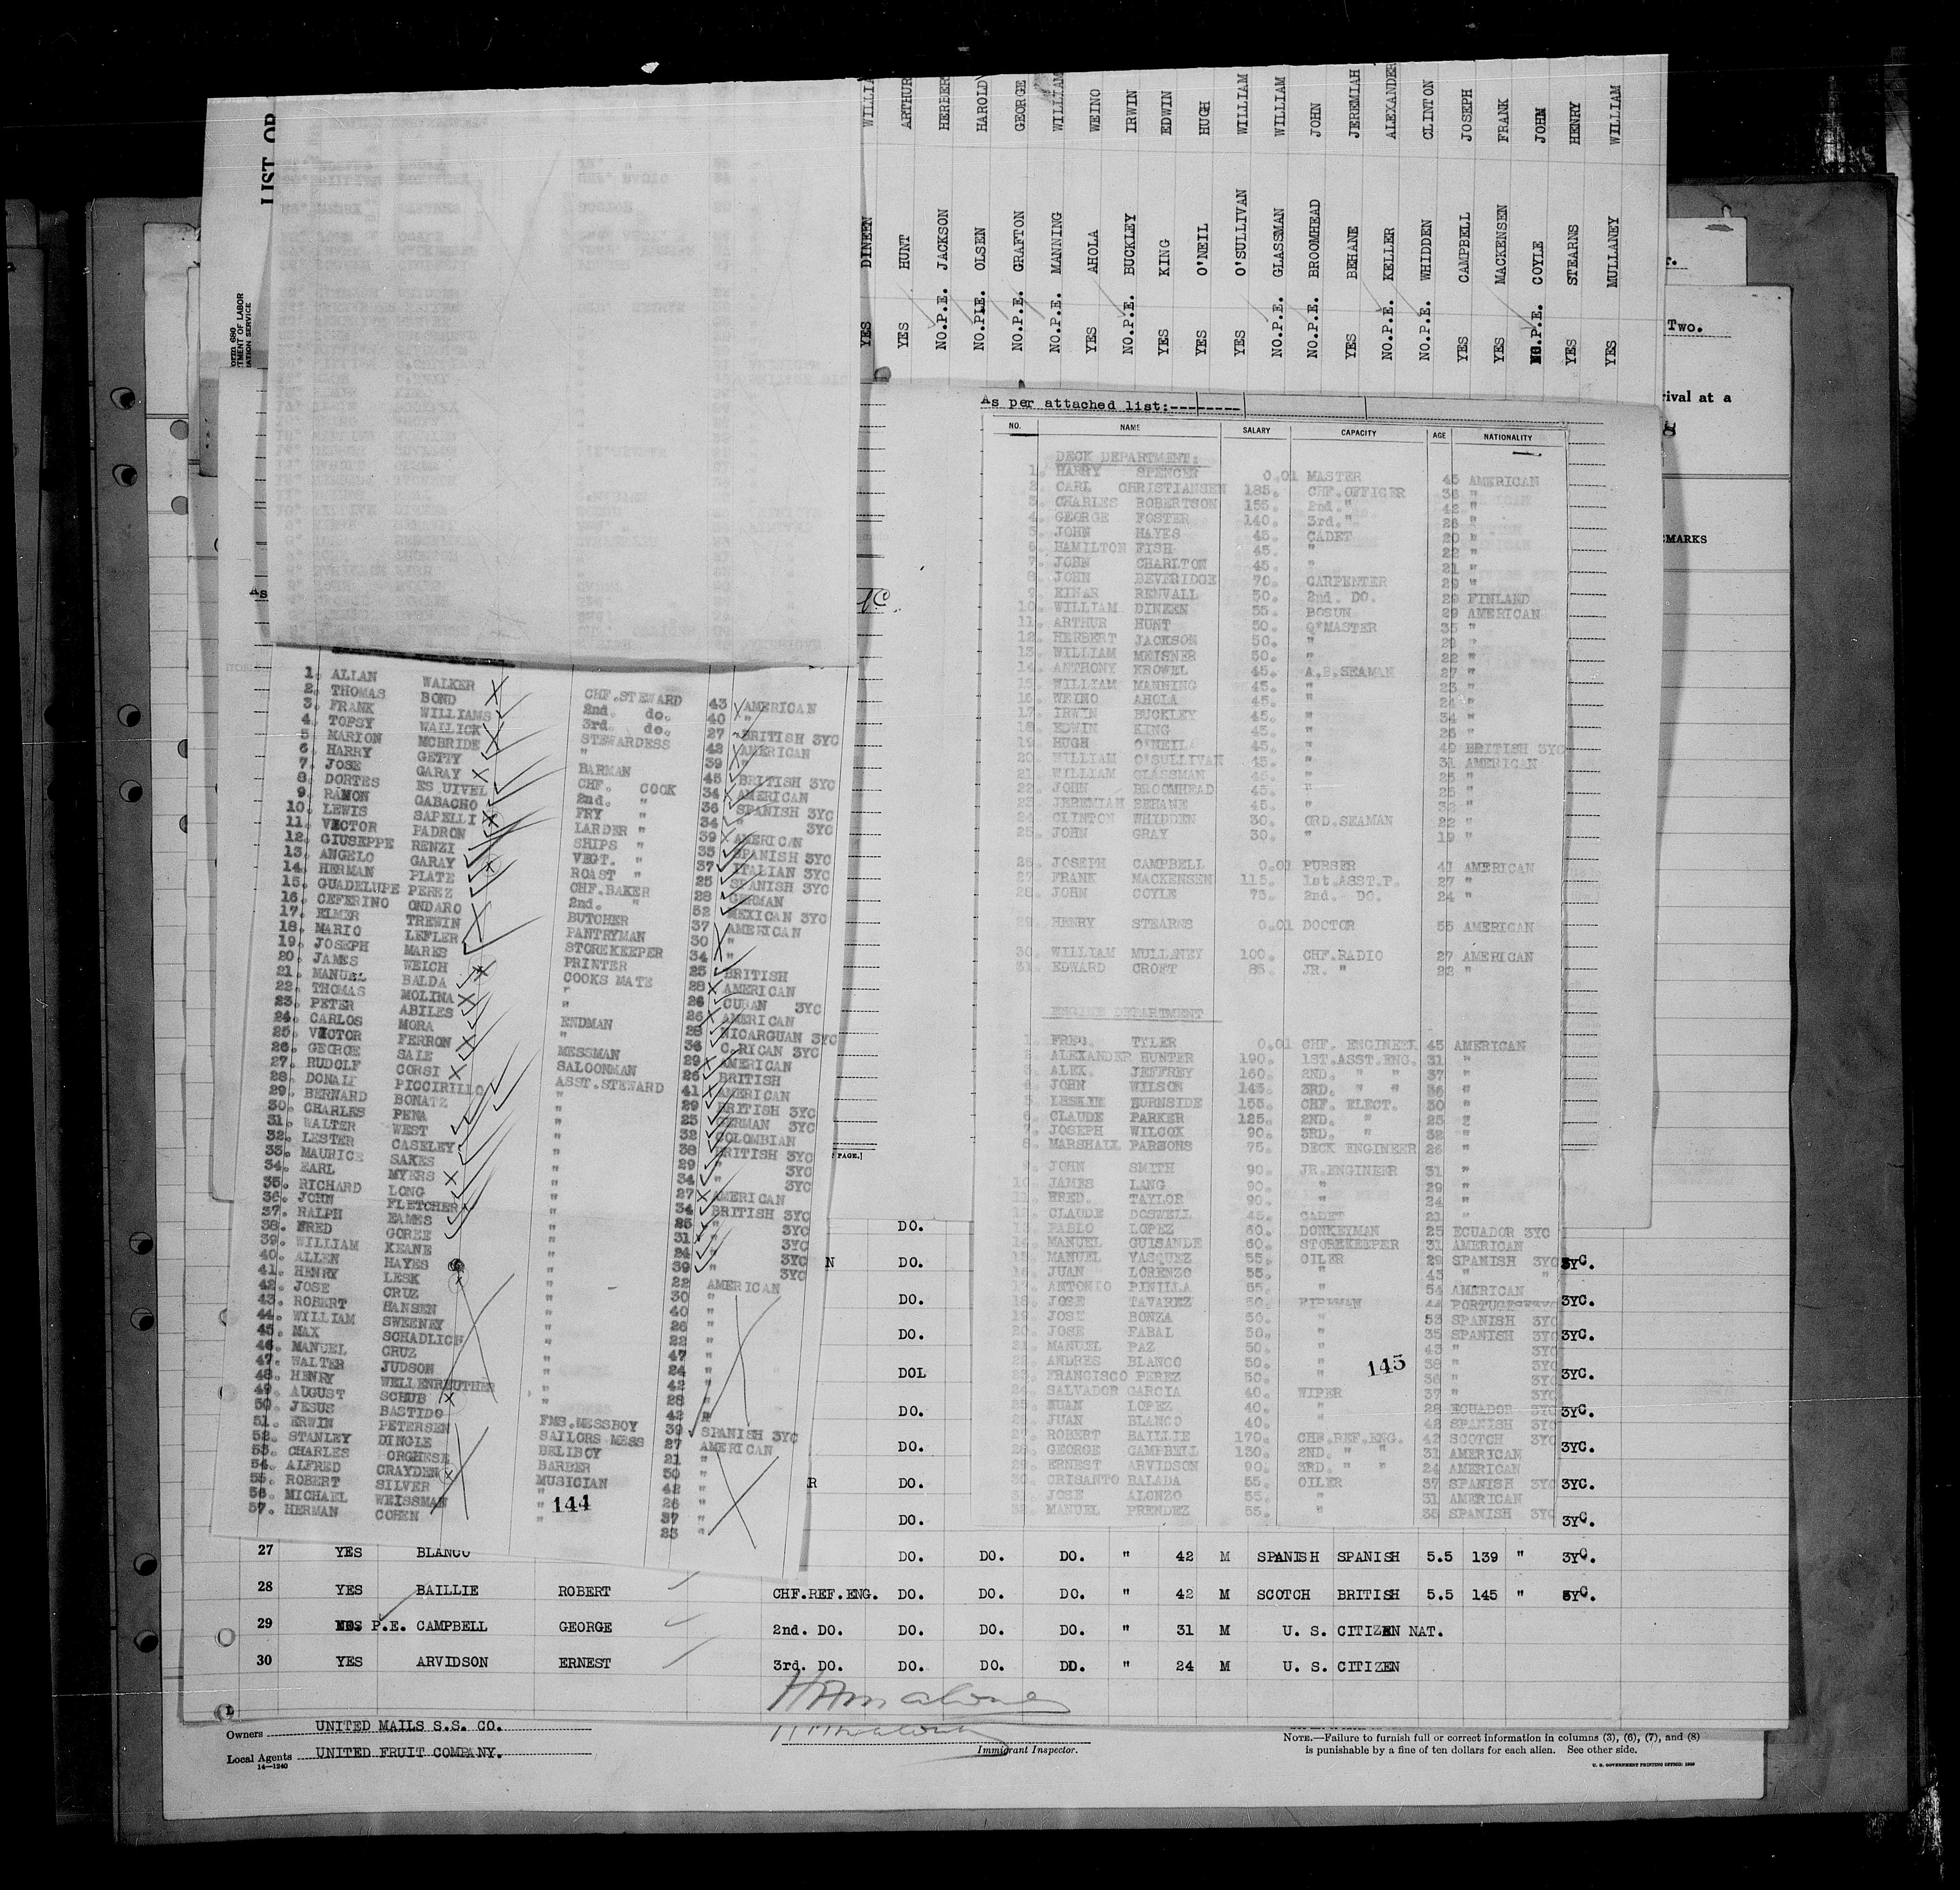 LIST OR
WILLIA
ARTHUR
HERBER
HAROLD
GEORGE
WILLIAM
WEINO
IRWIN
EDWIN
HUGH
WILLIAM
WILLIAM
JOHN
JEREMIAH
ALEXANDER
CLINTON
JOSEPH
FRANK
JOHN
HENRY
WILLIAM
YES DINEEN
YES HUNT
NO.P.E. JACKSON
OLSEN
NO.P.E. GRAFTON
NO.P.E. MANNING
YES AHOLA
NO.P.E. BUCKLEY
YES KING
YES O'NEIL
YES O'SULLIVAN
NO.P.E. GLASSMAN
NO.P.E. BROOMHEAD
YES BEHANE
NO.P.E. KELLER
NO.P.E. WHIDDEN
YES CAMPBELL
YES MACKENSEN
.P.E. COYLE
YES STEARNS
YES MULLANEY
orm 680
TMENT OF LABOR
ATION SERVICE
Two.
rival at a
MARKS
As
As per attached list:--------
NO. NAME SALARY CAPACITY AGE NATIONALITY
DECK DEPARTMENT:
1. HARRY SPENCER 0.01 MASTER 45 AMERICAN
2. CARL CHRISTIANSEN 185. CHF.OFFICER 36 "
3. CHARLES ROBERTSON 155. 2nd. " 42 "
4. GEORGE FOSTER 140. 3rd. " 26 "
5. JOHN HAYES 45. CADET 20 "
6. HAMILTON FISH 45. " 22 "
7. JOHN CHARLTON 45. " 21 "
8. JOHN BEVERIDGE 70. CARPENTER 29 "
9. EINAR RENVALL 50. 2nd. DO. 29 FINLAND
10. WILLIAM DINEEN 55. BOSUN 29 AMERICAN
11. ARTHUR HUNT 50. Q*MASTER 35 "
12. HERBERT JACKSON 50. " 29 "
13. WILLIAM MEISNER 50. " 22 "
14. ANTHONY KROWEL 45. A.B.SEAMAN 27 "
15. WILLIAM MANNING 45. " 23 "
16. WEINO AHOLA 45. " 24 "
17. IRWIN BUCKLEY 45. " 34 "
18. EDWIN KING 45. " 26 "
19. HUGH O'NEIL 45. " 49 BRITISH 3YC
20 WILLIAM O'SULLIVAN 45. " 31 AMERICAN
21. WILLIAM GLASSMAN 45. " 25 "
22. JOHN BROOMHEAD 45. " 25 "
23. JEREMIAH BEHANE 45. " 32 "
24. CLINTON WHIDDEN 30. ORD.SEAMAN 22 "
25. JOHN GRAY 30. " 19 "
26. JOSEPH CAMPBELL 0.01 PURSER 41 AMERICAN
27 FRANK MACKENSEN 115. 1st.ASST.P. 27 "
28. JOHN COYLE 75. 2nd. DO. 24 "
29. HENRY STEARNS 0.01 DOCTOR 55 AMERICAN
30. WILLIAM MULLENEY 100. CHF.RADIO 27 AMERICAN
31. EDWARD CROFT 85. JR. " 22 "
ENGINE DEPARTMENT
1. FRED. TYLER 0.01 CHF. ENGINEER 45 AMERICAN
2. ALEXANDER HUNTER 190. 1ST.ASST.ENG. 31 "
3. ALEX. JEFFREY 160. 2ND. " " 37 "
4. JOHN WILSON 145. 3RD. " " 36 "
5. LESLIE BURNSIDE 155. CHF. ELECT. 30 "
6. CLAUDE PARKER 125. 2ND. " 25 "
7. JOSEPH WILCOX 90. 3RD. " 32 "
8. MARSHALL PARSONS 75. DECK ENGINEER 26 "
9. JOHN SMITH 90. JR.ENGINEER 31 "
10. JAMES LANG 90. " 29 "
11. FRED. TAYLOR 90. " 24 "
12. CLAUDE DOSWELL 45. CADET 21 "
13. PABLO LOPEZ 60. DONKEYMAN 25 ECUADOR 3YC
14. MANUEL GUISANDE 60. STOREKEEPER 31 AMERICAN
15. MANUEL VASQUEZ 55. OILER 29 SPANISH 3YC
16. JUAN LORENZO 55. " 43 " "
17. ANTONIO PINILLA 55. " 54 AMERICAN
18. JOSE TAVAREZ 50. FIREMAN 44
19. JOSE BONZA 50. " 53 SPANISH 3YC
20. JOSE FABAL 50. " 35 SPANISH 3YC
21. MANUEL PAZ 50. " 43 " 3YC
22. ANDRES BLANCO 50. " 38 " 3YC
23. FRANCISCO PEREZ 50. " 36 " 3YC
24. SALVADOR GARCIA 40. WIPER 37 " 3YC
25. JUAN LOPEZ 40. " 28 ECUADOR 3YC
26. JUAN BLANCO 40. " 42 SPANISH 3YC
27. ROBERT BAILLIE 170. CHF.REF.ENG. 42 SCOTCH 3YC
28. GEORGE CAMPBELL 130. 2ND. " " 31 AMERICAN
29. ERNEST ARVIDSON 90. 3RD. " " 24 AMERICAN
30. CRISANTO BALADA 55. OILER 37 SPANISH 3YC
31. JOSE ALONZO 55. " 31 AMERICAN
32. MANUEL PRENDEZ 55. " 35 SPANISH 3YC
145
1. ALLAN WALKER CHF.STEWARD 43 AMERICAN
2. THOMAS BOND 2nd. do. 40 "
3. FRANK WILLIAMS 3rd. do. 27 BRITISH 3YC
4. TOPSY WALLICK STEWARDESS 42 AMERICAN
5 MARION MCBRIDE " 39 "
6. HARRY GETTY BARMAN 45 BRITISH 3YC
7. JOSE GARAY CHF. COOK 34 AMERICAN
8. DORTES ES UIVEL 2nd. " 36 SPANISH 3YC
9. RAMON GABACHO FRY " 34 " 3YC
10. LEWIS SAPELLI LARDER " 39 AMERICAN
11. VICTOR PADRON SHIPS " 35 SPANISH 3YC
12. GIUSEPPE RENZI VEGT. " 37 ITALIAN 3YC
13. ANGELO GARAY ROAST " 25 SPANISH 3YC
14. HERMAN PLATE CHF.BAKER 28 GERMAN
15. GUADELUPE PEREZ 2nd. " 52 MEXICAN 3YC
16. CEFERINO ONDARO BUTCHER 37 AMERICAN
17. ELMER TREWIN PANTRYMAN 30 "
18. MARIO LEFLER STOREKEEPER 34 "
19. JOSEPH MARKS PRINTER 25 BRITISH
20. JAMES WELCH COOKS MATE 28 AMERICAN
21. MANUEL BALDA " 26 CUBAN 3YC
22. THOMAS MOLINA " 26 AMERICAN
23. PETER ABILES ENDMAN 28 NICARGUAN 3YC
24. CARLOS MORA " 36 C.RICAN 3YC
25. VICTOR FERRON MESSMAN 29 AMERICAN
26. GEORGE SALE SALOONMAN 26 BRITISH
27. RUDOLF CORSI ASST.STEWARD 41 AMERICAN
28. DONALD PICCIRILLO " 29 BRITISH 3YC
29. BERNARD BONATZ " 25 GERMAN 3YC
30. CHARLES PENA " 32 COLOMBIAN
31. WALTER WEST " 38 BRITISH 3YC
32. LESTER CASELEY " 29 " 3YC
33. MAURICE SAKES " 34 " 3YC
34. EARL MYERS " 27 AMERICAN
35. RICHARD LONG " 34 BRITISH 3YC
36. JOHN FLETCHER " 25 " 3YC
37. RALPH EAMES " 31 " 3YC
38. FRED GOREE " 24 " 3YC
39. WILLIAM KEANE " 39 " 3YC
40. ALLEN HAYES " 22 AMERICAN
41. HENRY LESK " 30 "
42. JOSE CRUZ " 40 "
43. ROBERT HANSEN " 26 "
44. WILLIAM SWEENEY " 22 "
45. MAX SCHADLICH " 47 "
46. MANUEL CRUZ " 24 "
47. WALTER JUDSON " 42 "
48. HENRY WELLENREUTHER " 28 "
49. AUGUST SCHUB " 42 "
50. JESUS BASTIDO FMS.MESSBOY 39 SPANISH 3YC
51. ERWIN PETERSEN SAILORS MESS 27 AMERICAN
52. STANLEY DINGLE BELLBOY 21 "
53. CHARLES BORGHESE BARBER 50 "
54. ALFRED CRAYDEN MUSICIAN 42 "
55. ROBERT SILVER " 26 "
56. MICHAEL WEISSMAN " 37 "
57. HERMAN COHEN " 23 "
144
PAGE.]
DO.
N DO. 3YC.
DO. 3YC.
DO. 3YC.
DOL 3YC.
DO. 3YC.
DO. 3YC.
R DO. 3YC.
DO. 3YC.
27 YES BLANCO DO. DO. DO. " 42 M SPANISH SPANISH 5.5 139 " 3YC.
28 YES BAILLIE ROBERT CHF.REF.ENG. DO. DO. DO. " 42 M SCOTCH BRITISH 5.5 145 " 3YC.
29 P.E. CAMPBELL GEORGE 2nd. DO. DO. DO. DO. " 31 M U. S. CITIZEN NAT.
30 YES ARVIDSON ERNEST 3rd. DO. DO. DO. DO. " 24 M U. S. CITIZEN
Owners UNITED MAILS S.S. CO.
Local Agents UNITED FRUIT COMPANY.
14—1240
Immigrant Inspector.
NOTE.—Failure to furnish full or correct information in columns (3), (6), (7), and (8)
is punishable by a fine of ten dollars for each alien. See other side.
U. S. GOVERNMENT PRINTING OFFICE: 1929